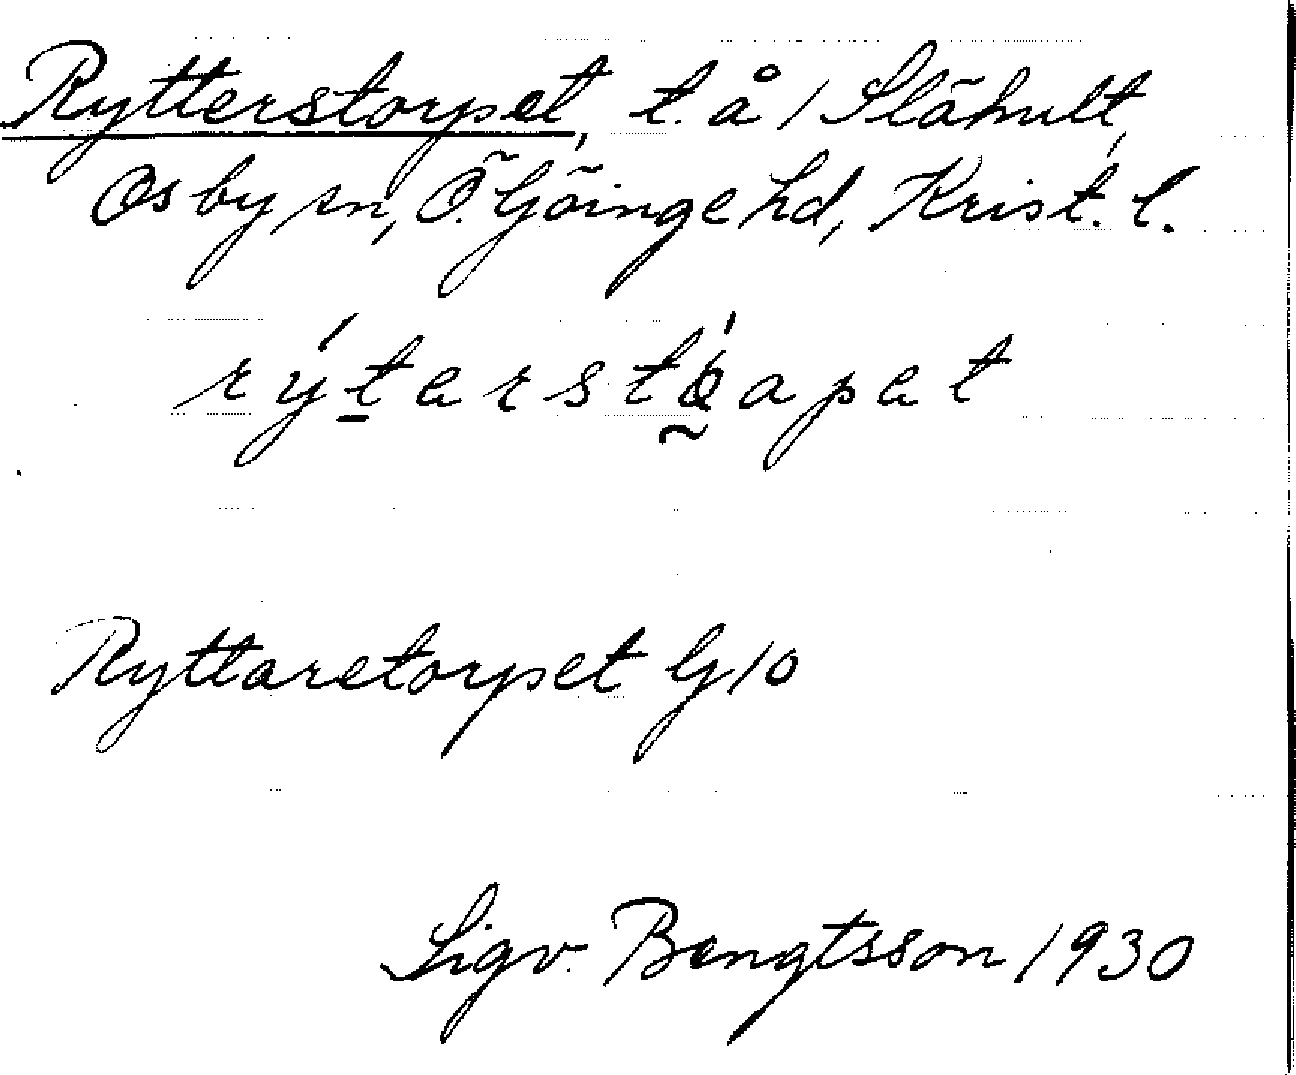 Rytterstorpet, t. å 1 Slähult,
Osby sn, Ö. Göinge hd, Krist. l.
rýterstapet
Ryttaretorpet G 10
Sigv. Bengtsson 1930